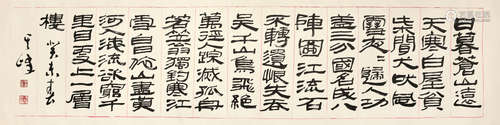 日暮蒼山遠
天寒白屋貧
柴門聞犬吠風
雪夜歸人功
蓋三分國名成八
陣圖江流石
不轉遺恨失吞
吳千山鳥飛絕
萬徑人蹤滅孤舟
蓑笠翁獨釣寒江
雪白日依山盡黃
河入海流欲窮千
里目更上一層
樓 癸未春
其峰